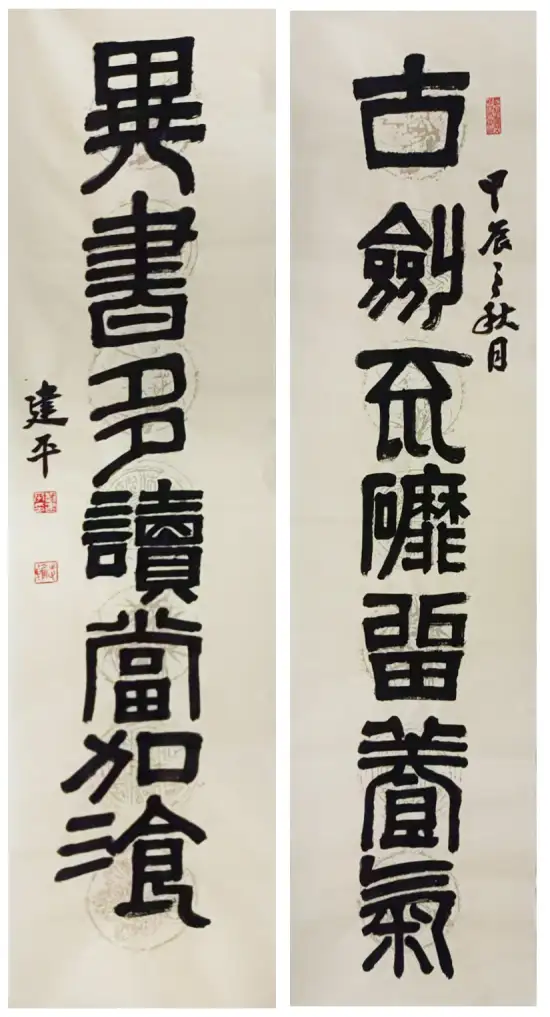 甲辰之秋月
古劍不磨留養氣
異書多讀當加湌
建平